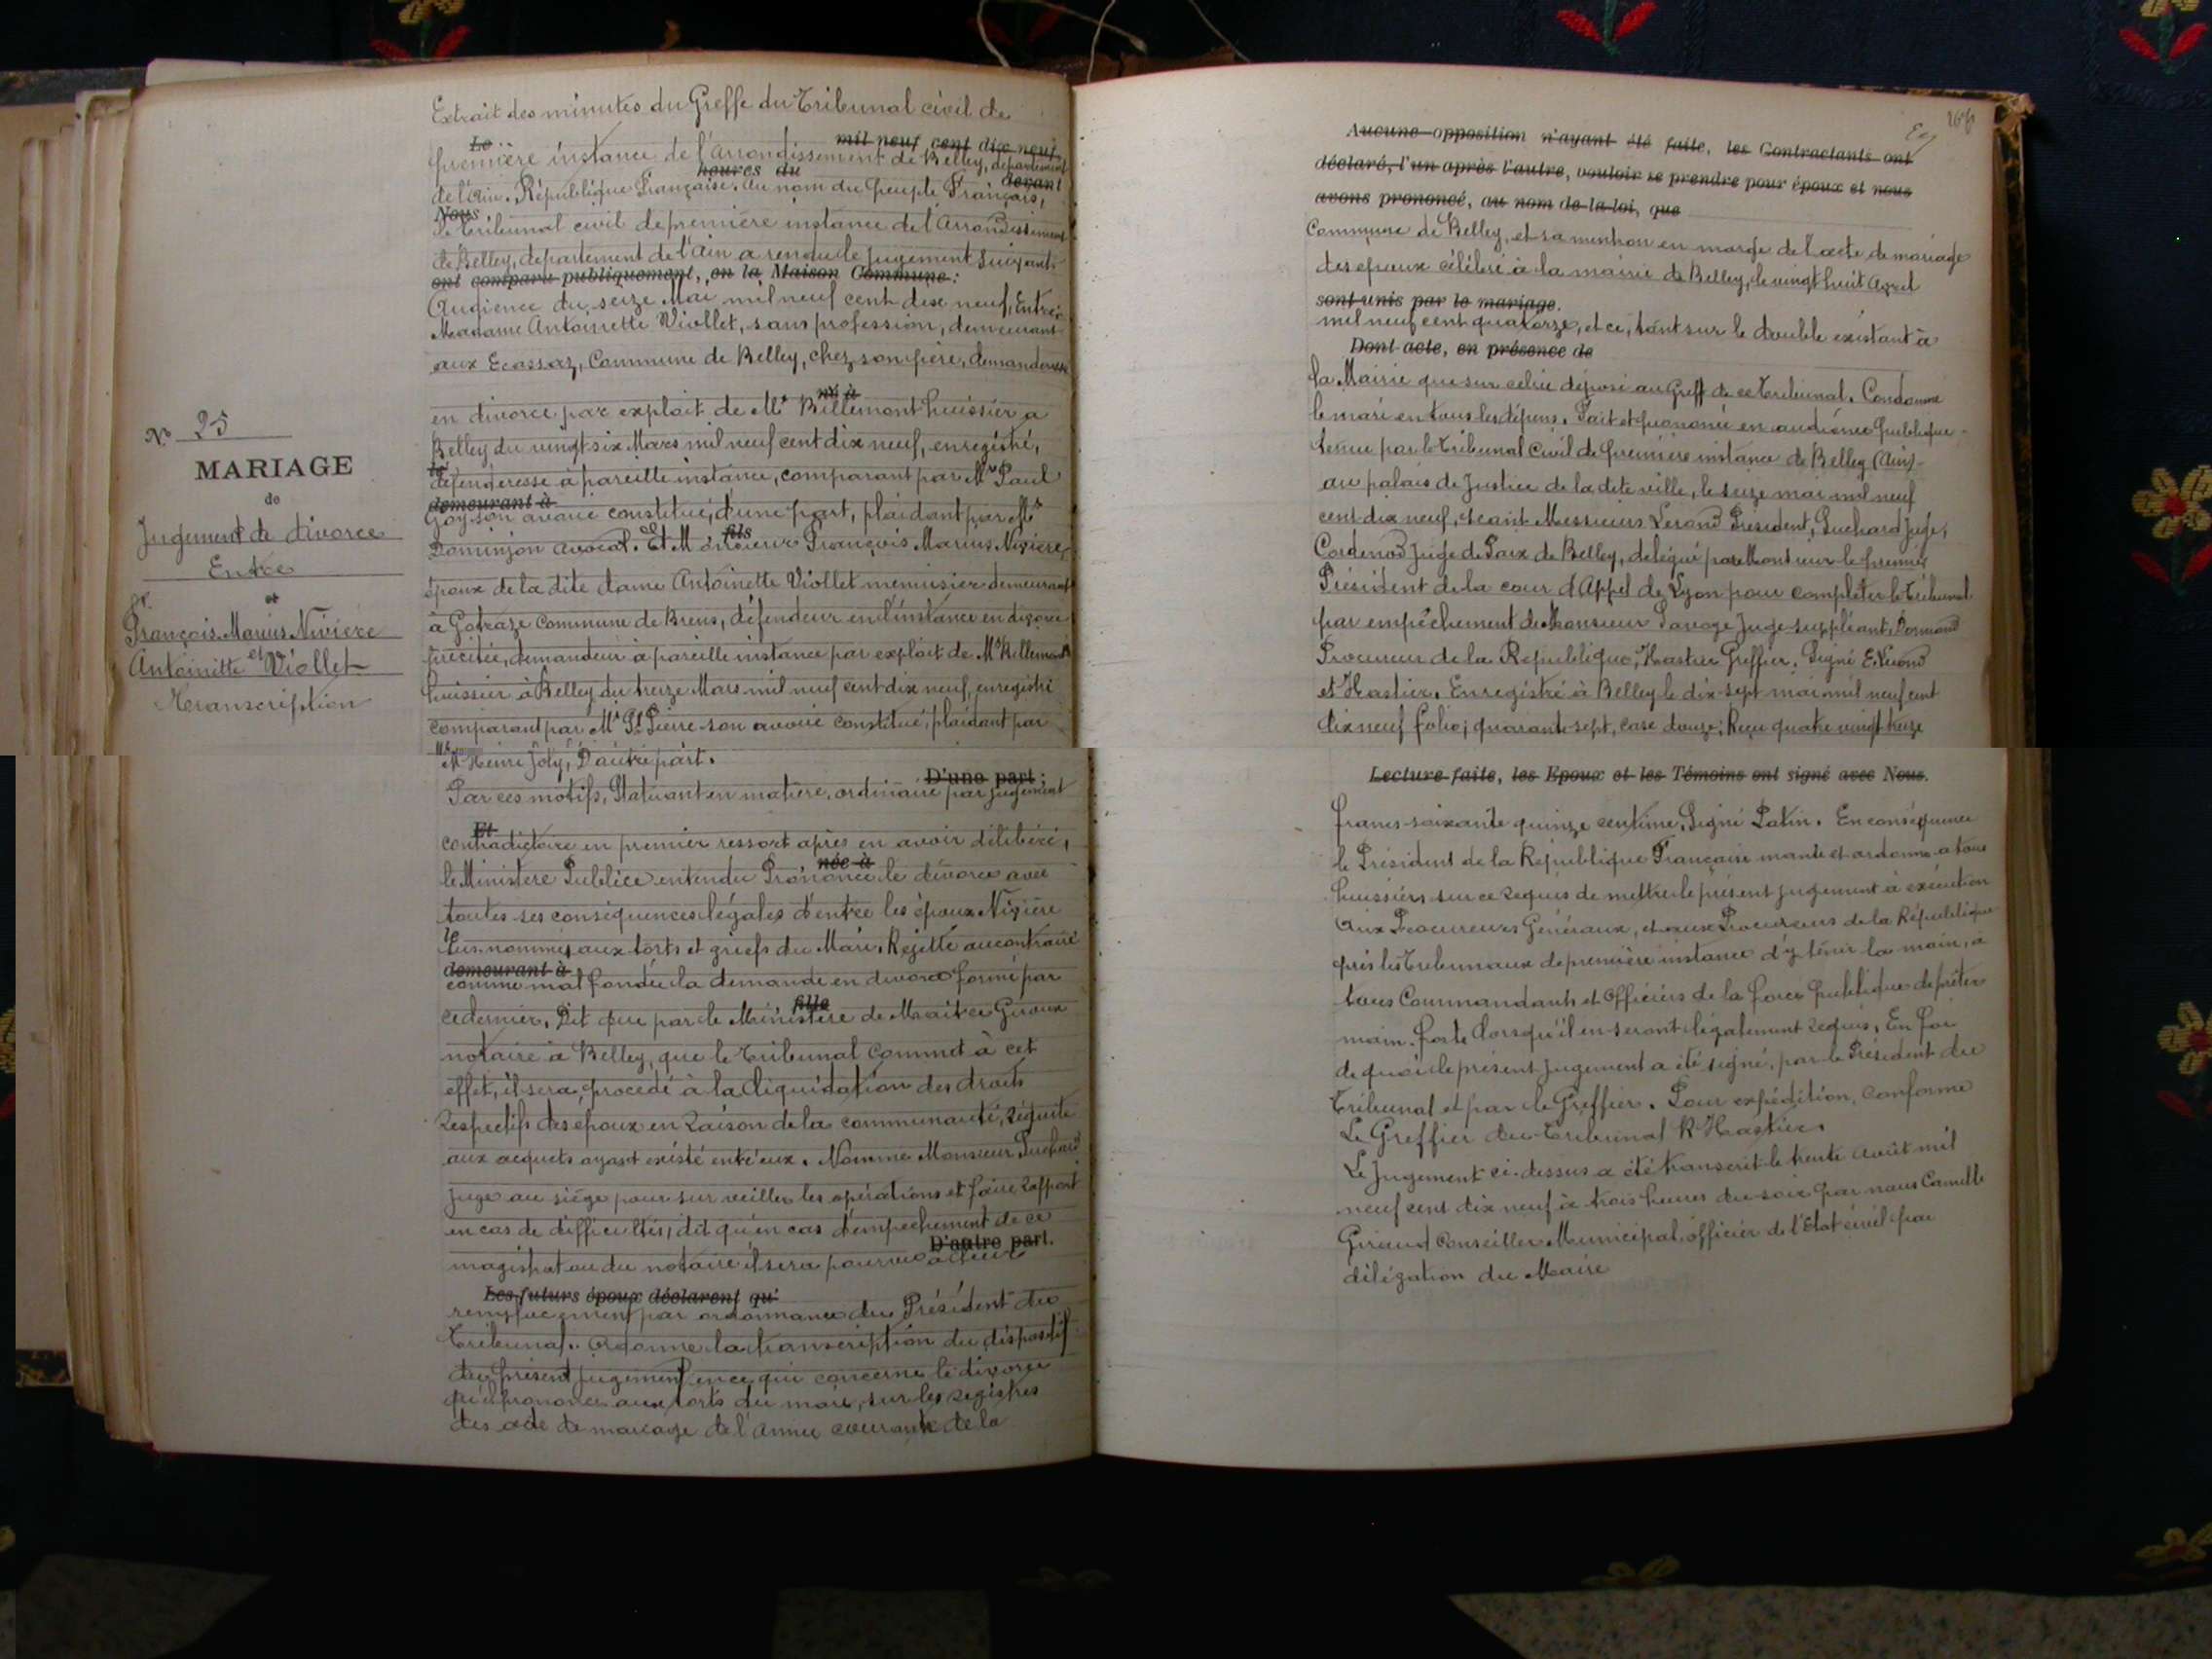 Nº 25
MARIAGE
de
Jugement de divorce
Entre
et
François Marius Nivière
et
Antoinette Viollet
Transcription
Extrait des minutes du Greffe du Tribunal civil de
Le mil neuf cent dix-neuf
première instance de l'arrondissement de Belley, département
heures du
de l'Ain. République Française. Au nom du peuple Français,
devant
Nous
Le Tribunal civil de première instance de l'Arrondissement
de Belley, département de l'Ain a rendu le jugement suivant.
ont comparu publiquement, en la Maison Commune:
Audience du seize Mai mil neuf cent dix neuf, Entre
Madame Antoinette Viollet, sans profession, demeurant
aux Ecassaz, Commune de Belley, chez son père, demanderesse
né à
en divorce par exploit de Me Billemont huissier à
Belley du vingt six Mars mil neuf cent dix neuf, enregistré,
le
défenderesse à pareille instance, comparant par Me Paul
demeurant à
Goy son avoué constitué, d'une part, plaidant par Me
fils
Dominjon avocat. Et Monsieur François Marius Nivière,
époux de la dite dame Antoinette Viollet menuisier demeurant
à Gotraze Commune de Brens, défendeur en l'instance en divorce
précitée, demandeur à pareille instance par exploit de Me Billemont
huissier à Belley du treize Mars mil neuf cent dix neuf, enregistré
comparant par Me St Pierre son avoué constitué, plaidant par
Me Henri Joly, D'autre part.
D'une part;
Par ces motifs, Statuant en matière, ordinaire par jugement
Et
contradictoire en premier ressort après en avoir délibéré,
née à
le Ministère Public entendu Prononce le divorce avec
toutes ses conséquences légales d'entre les époux Nivière
le
sus-nommés aux torts et griefs du Mari. Rejette au contraire
demeurant à
comme mal fondée la demande en divorce formé par
fille
ce dernier. Dit que par le Ministère de Maitre Giroux
notaire à Belley, que le Tribunal commet à cet
effet, il sera procédé à la liquidation des droits
respectifs des époux en raison de la communauté, réduite
aux acquets ayant existé entr'eux. Nomme Monsieur Luchard
juge au siège pour surveiller les opérations et faire rapport
en cas de difficultés, dit qu'en cas d'empêchement de ce
D'autre part.
magistrat ou du notaire il sera pourvu à leur
Les futurs époux déclarent qu'
remplacement par ordonnance du Président du
Tribunal. Ordonne la transcription du dispositif
du présent jugement en ce qui concerne le divorce
qu'il prononce aux torts du mari, sur les registres
des acte de mariage de l'année courante de la
Aucune opposition n'ayant été faite, les Contractants ont
déclaré, l'un après l'autre, vouloir se prendre pour époux et nous
avons prononcé, au nom de la loi, que
Commune de Belley, et sa mention en marge de l'acte de mariage
des époux célébré à la mairie de Belley, le vingt huit Avril
sont unis par le mariage.
mil neuf cent quatorze, et ce, tant sur le double existant à
Dont acte, en présence de
la Mairie que sur celui déposé au Greff de ce Tribunal. Condamne
le mari en tous les dépens. Fait et prononcé en audience publique
tenue par le Tribunal Civil de première instance de Belley (Ain)
au palais de Justice de la dite ville, le seize mai mil neuf
cent dix neuf, séant Messieurs Président, Luchard Juge,
Cordenod Juge de Paix de Belley, délégué par Monsieur le premier
Président de la cour d'Appel de Lyon pour compléter le Tribunal
par empêchement de Monsieur Savoge Juge-suppléant,
Procureur de la République, Hastier Greffier. Signé
et Hastier. Enregistré à Belley le dix-sept mai mil neuf cent
dix neuf folio; quarante-sept, case douze; Reçu quatre vingt treize
Lecture faite, les Epoux et les Témoins ont signé avec Nous.
francs soixante quinze centime, Signé Patin. En conséquence
le Président de la République Française mande et ordonne à tous
huissiers sur ce requis de mettre le présent jugement à exécution
Aux Procureurs Généraux, et aux Procureurs de la République
près les Tribunaux de première instance d'y tenir la main, à
tous Commandants et Officiers de la force publique de prêter
main-forte lorsqu'il en seront légalement requis. En foi
de quoi le présent jugement a été signé, par le Président du
Tribunal et par le Greffier. Pour expédition, conforme
Le Greffier du Tribunal R Hastier.
Le Jugement ci-dessus a été transcrit le trente Août mil
neuf cent dix neuf à trois heures du soir par nous Camille
Giraud Conseiller Municipal officier de l'Etat civil par
délégation du Maire